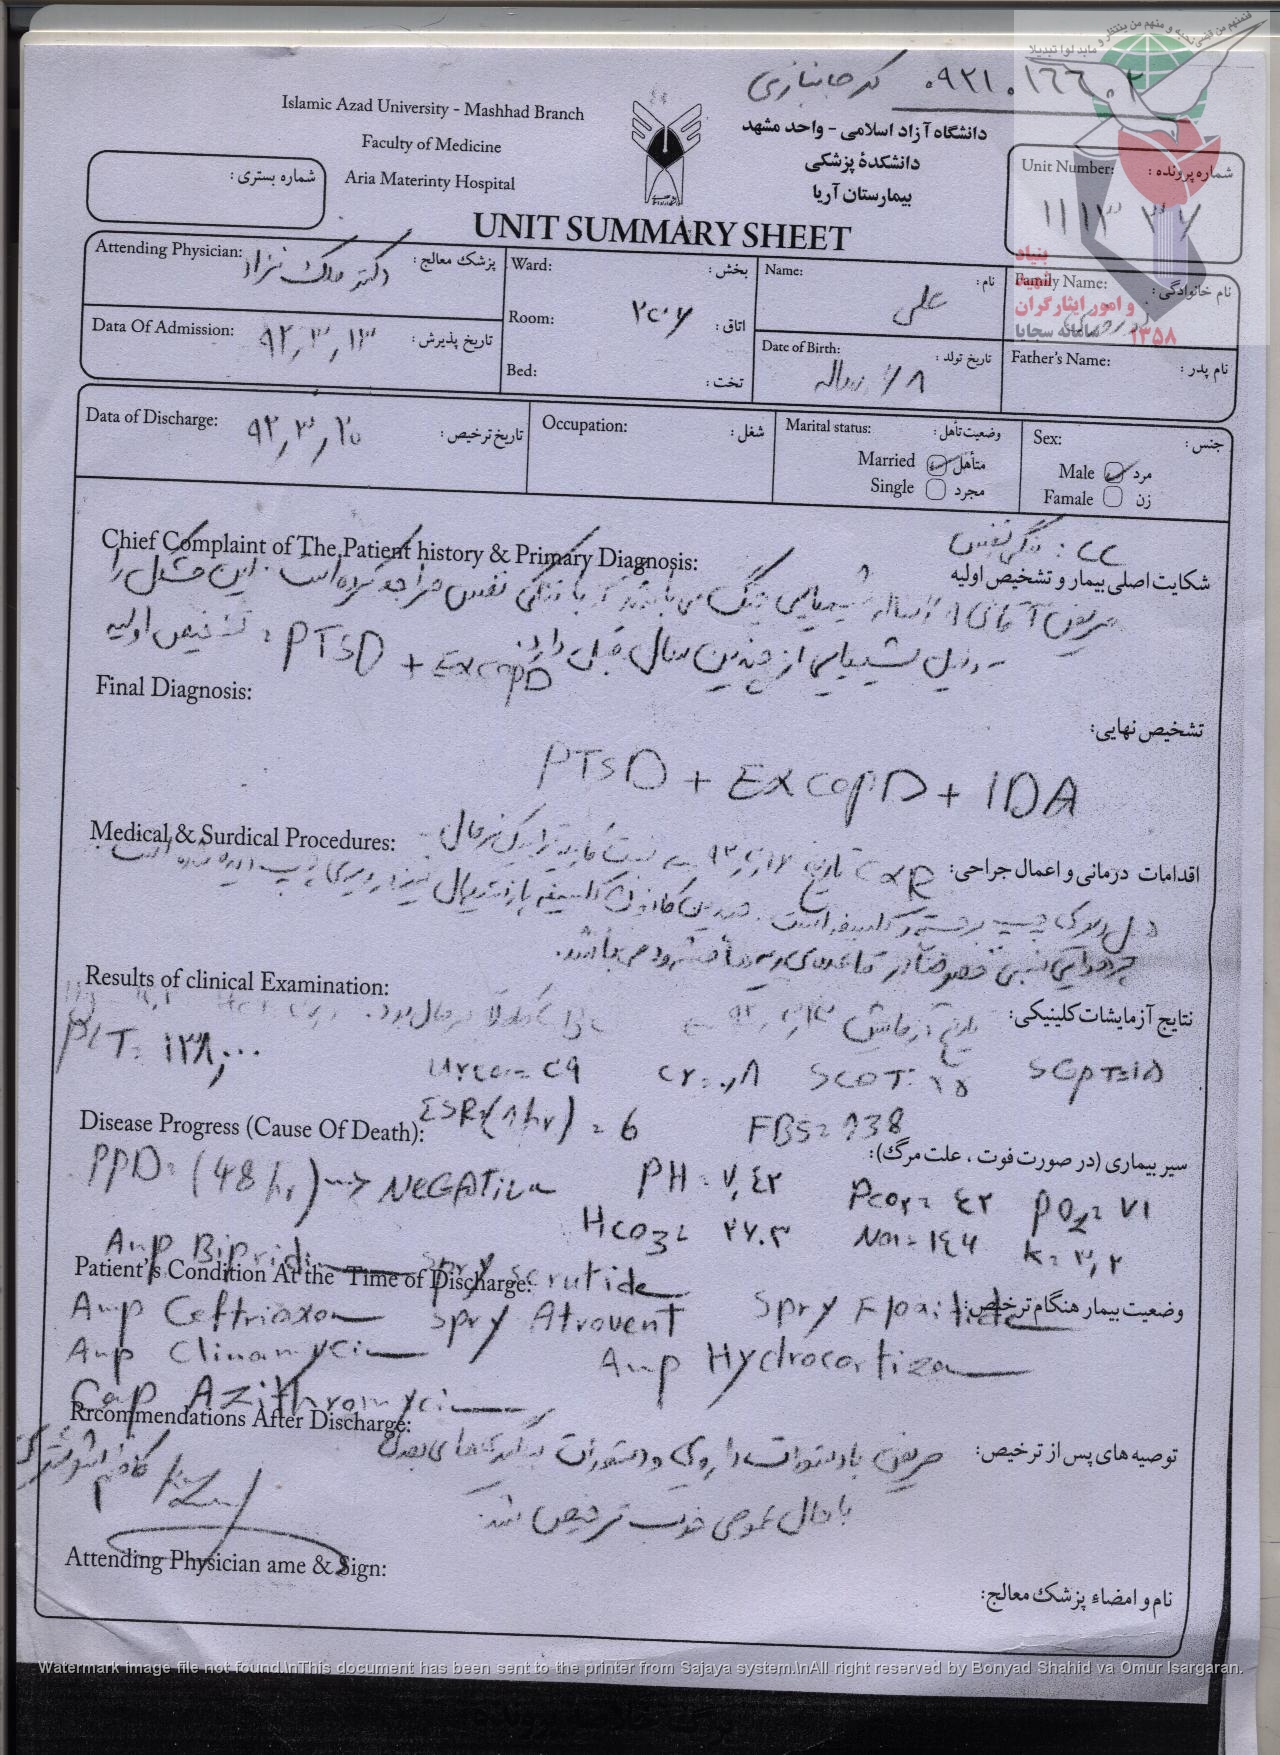 فمنهم من قضی نحبه و منهم من ینتظر و ما بدلوا تبدیلا
کد جانبازی ۰۹۲۱۰۱۶۶۰۲
Islamic Azad University - Mashhad Branch
Faculty of Medicine
Aria Materinty Hospital
دانشگاه آزاد اسلامی - واحد مشهد
دانشکدهٔ پزشکی
بیمارستان آریا
شماره بستری :
UNIT SUMMARY SHEET
Unit Number: شماره پرونده :
بنیاد شهید و امور ایثارگران
سامانه سجایا ۱۳۵۸
Attending Physician: پزشک معالج : دکتر ملک نژاد
Ward: بخش :
Room: اتاق : ۲۰۷
Bed: تخت :
Name: نام : علی
Family Name: نام خانوادگی :
Data Of Admission: تاریخ پذیرش : ۹۲,۳,۱۳
Date of Birth: تاریخ تولد : ۷۸ ساله
Father's Name: نام پدر :
Data of Discharge: تاریخ ترخیص : ۹۲,۳,۲۰
Occupation: شغل :
Marital status: وضعیت تأهل :
Married متأهل
Single مجرد
Sex: جنس :
Male مرد
Famale زن
Chief Complaint of The Patient history & Primary Diagnosis:
CC : تنگی نفس
شکایت اصلی بیمار و تشخیص اولیه
مریض آقای ۷۸ ساله شیمیایی جنگ می باشد که با تنگی نفس مراجعه کرده است . این مشکل را
بدلیل شیمیایی از چندین سال قبل دارد. PTSD + ExcopD = تشخیص اولیه
Final Diagnosis:
تشخیص نهایی:
PTSD + ExcopD + IDA
Medical & Surdical Procedures:
اقدامات درمانی و اعمال جراحی:
CXR تاریخ نسبت کاردیوتوراسیک نرمال
ناف ریه چپ برجسته و کلسیفیه است. چندین کانون کلسیفیه پارانشیمال نیز در ریه چپ دیده شده است.
پرهوایی نسبی خصوصاً در قاعده ی ریه ها مشهود می باشد.
Results of clinical Examination:
نتایج آزمایشات کلینیکی:
تاریخ آزمایش ۹۲,۳,۱۳ نرمال بود.
PLT = ۱۳۸,۰۰۰ Urea = ۲۹ Cr = ۰,۸ SGOT: ۱۵ SGPT=۱۵
Disease Progress (Cause Of Death): ESR (1hr) = 6 FBS = 138
سیر بیماری (در صورت فوت ، علت مرگ):
PPD = (48 hr) --> NEGATive PH = ۷,۴۲ Pco2 = ۴۲ PO2 = ۷۱
HCO3 = ۲۷.۳ Na = ۱۴۴ K = ۳,۲
Amp Bipridin Spry Serutide
Patient's Condition At the Time of Discharge:
وضعیت بیمار هنگام ترخیص:
Amp Ceftriaxon Spry Atrovent Spry Flixitide
Amp Clinamycin Amp Hydrocortizon
Cap Azithromycin
Rrcommendations After Discharge:
توصیه های پس از ترخیص:
مریض با دستورات دارویی و دستورات پیگیری های بعدی
با حال عمومی خوب ترخیص شد.
Attending Physician ame & Sign:
نام و امضاء پزشک معالج:
Watermark image file not found.\nThis document has been sent to the printer from Sajaya system.\nAll right reserved by Bonyad Shahid va Omur Isargaran.
برگ خلاصه پرونده